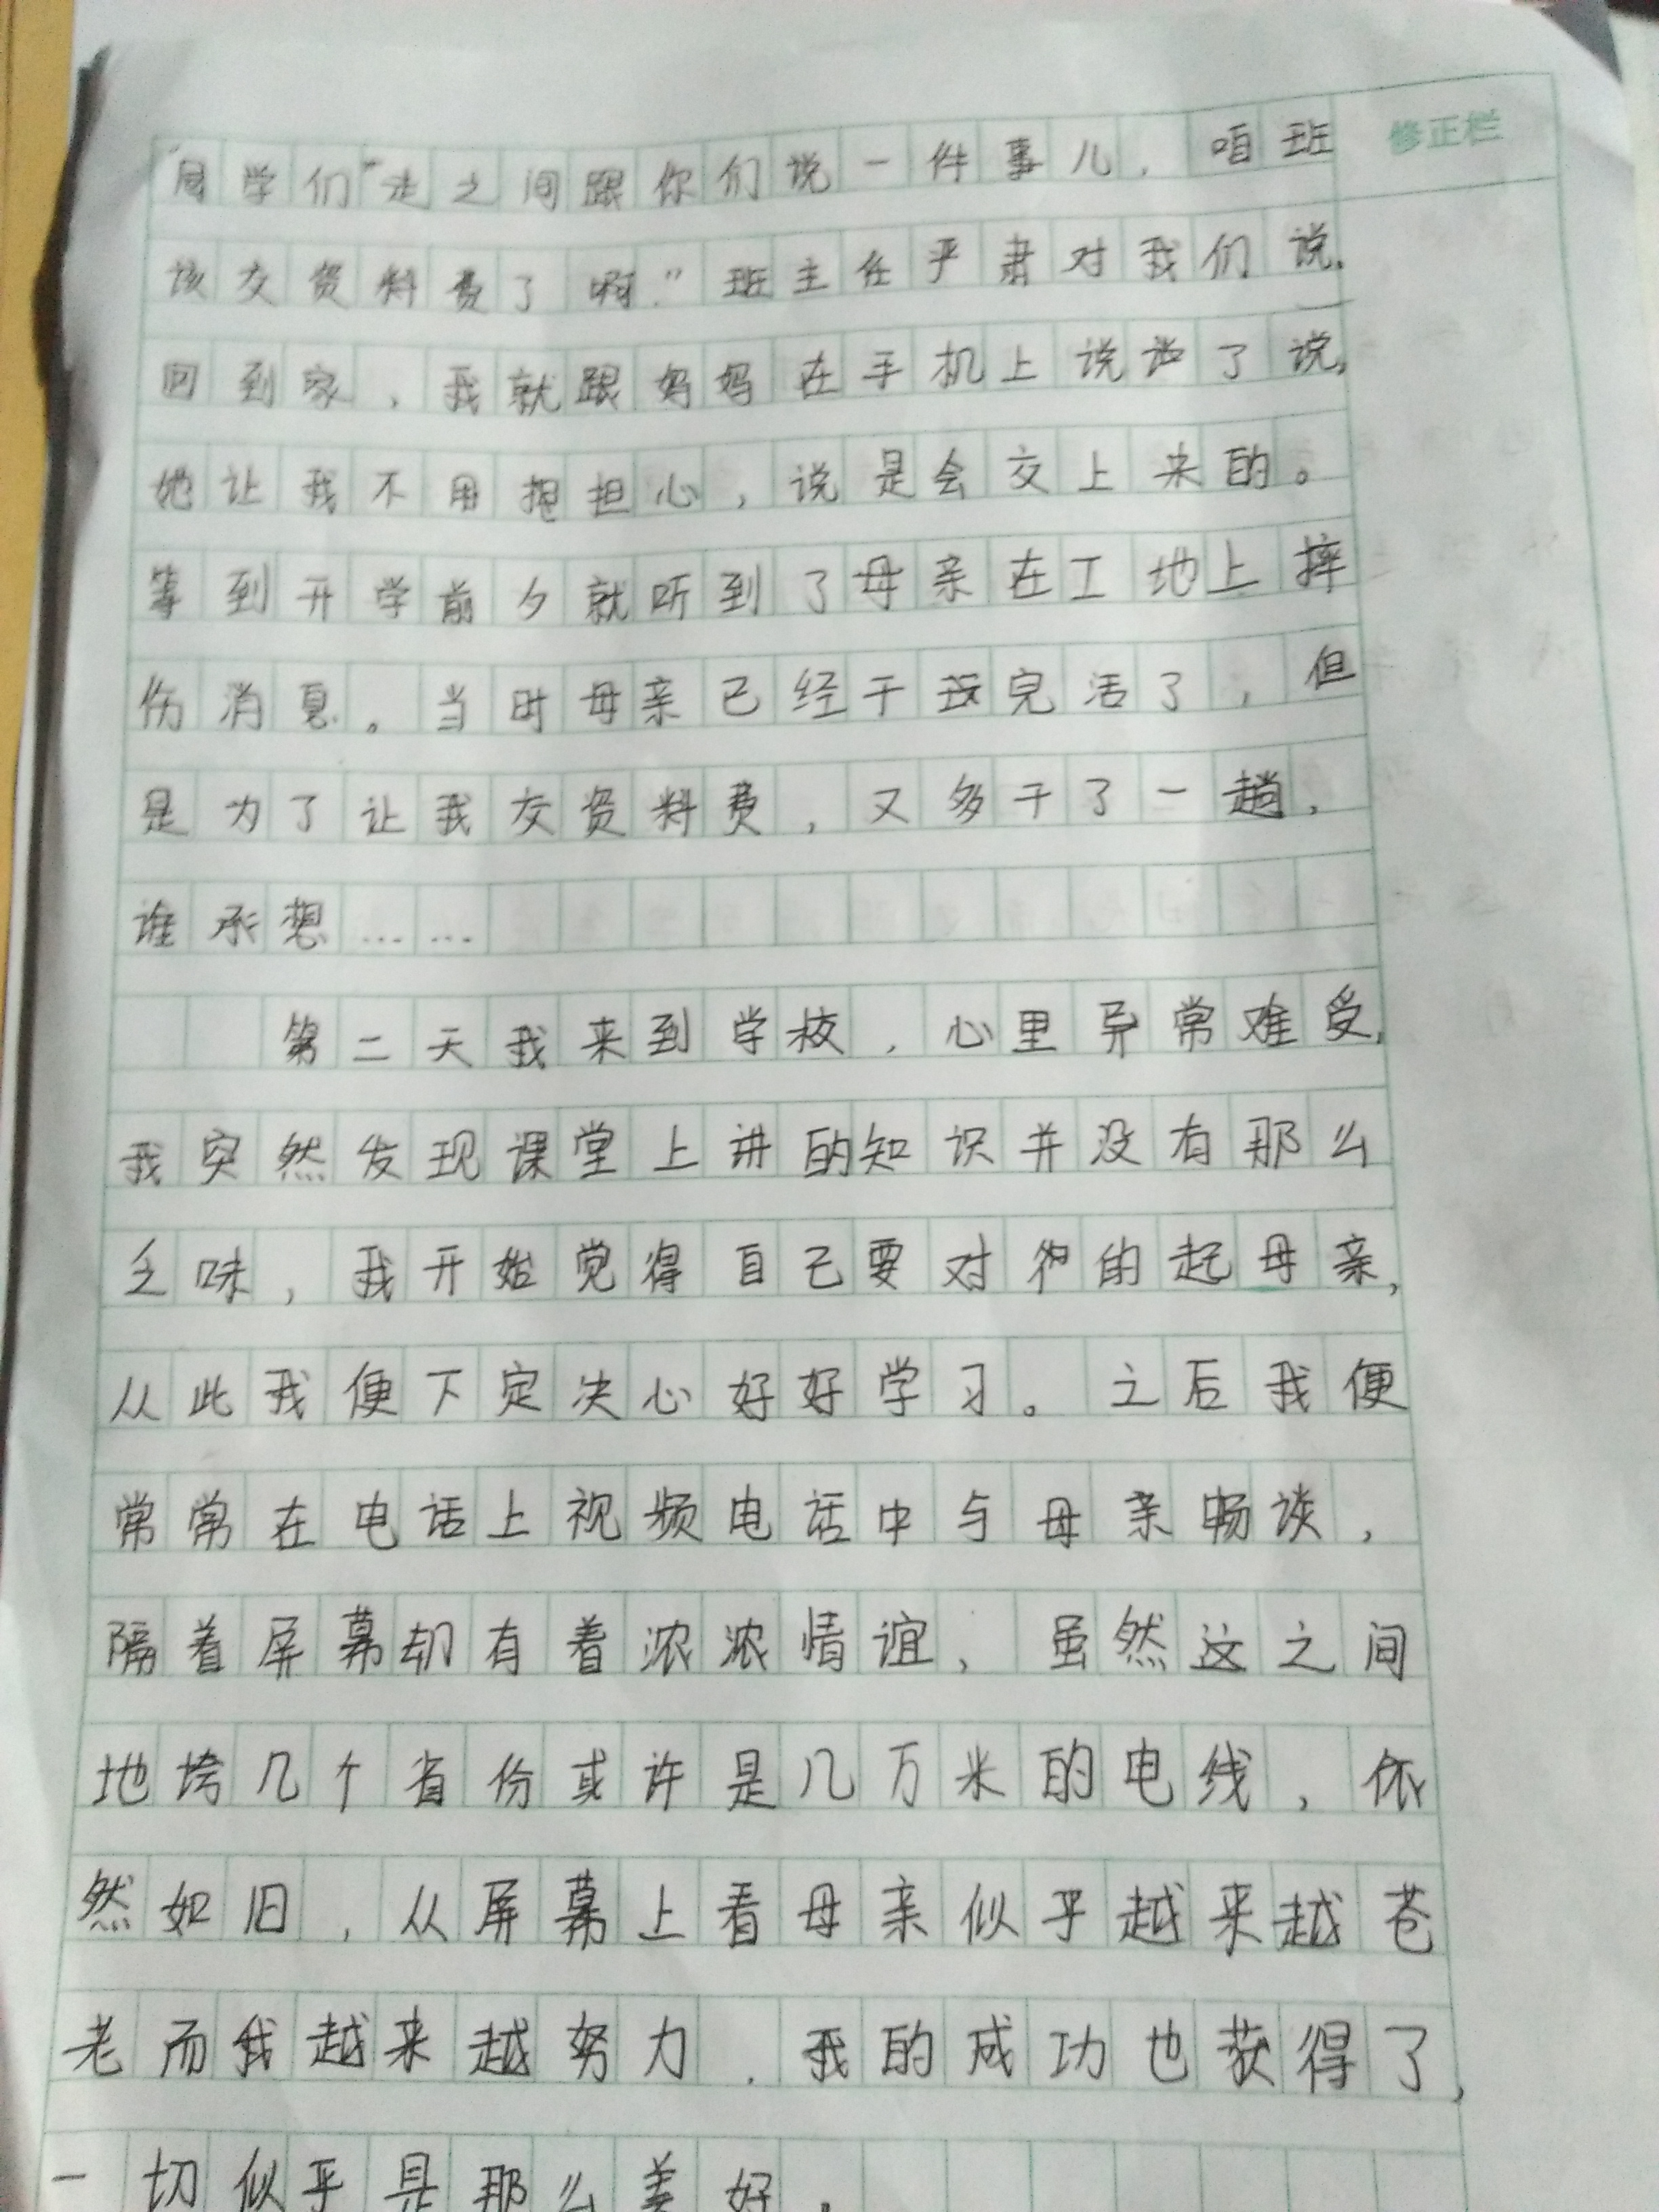 修正栏
同学们"走之间跟你们说一件事儿，咱班
该交资料费了啊."班主任严肃对我们说。
回到家，我就跟妈妈在手机上说说了说，
她让我不用担心，说是会交上来的。
等到开学前夕就听到了母亲在工地上摔
伤消息。当时母亲已经干完活了，但
是为了让我交资料费，又多干了一趟，
谁承想……
第二天我来到学校，心里异常难受，
我突然发现课堂上讲的知识并没有那么
乏味，我开始觉得自己要对的起母亲，
从此我便下定决心好好学习。之后我便
常常在电话上视频电话中与母亲畅谈，
隔着屏幕却有着浓浓情谊，虽然这之间
地垮几个省份或许是几万米的电线，依
然如旧，从屏幕上看母亲似乎越来越苍
老而我越来越努力．我的成功也获得了，
一切似乎是那么美好。